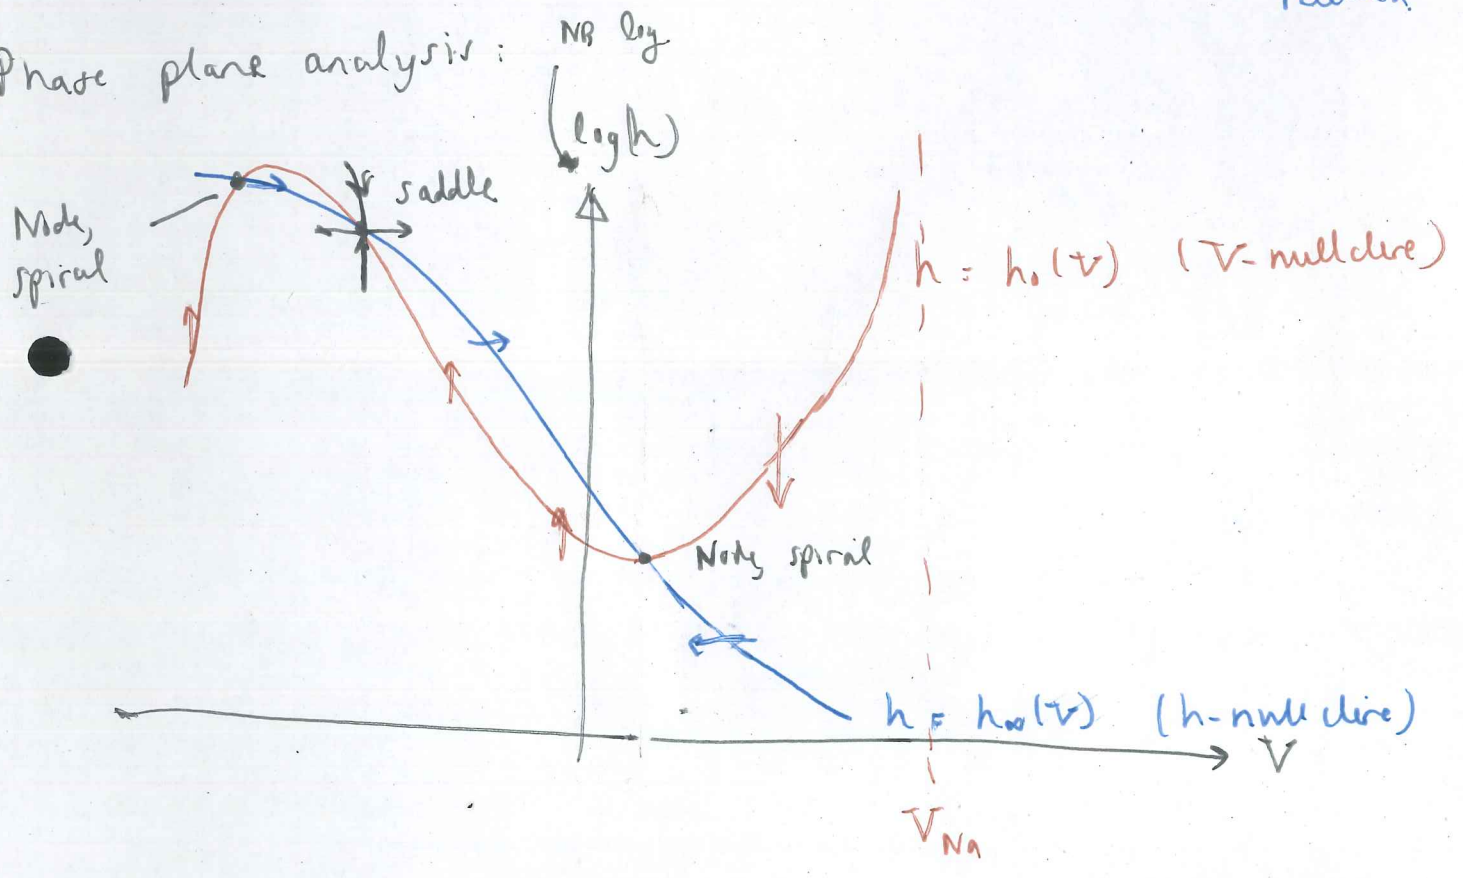 Phase plane analysis :
NB log
log(h)
saddle
Node,
spiral
h = h₀(V) (V-nullcline)
Node, spiral
h = h∞(V) (h-nullcline)
V
V_Na